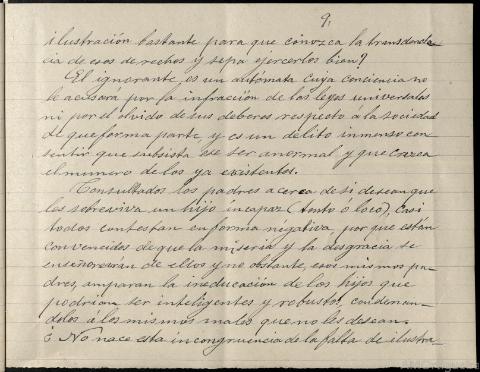 9,
ilustración bastante para que conozca la transdenden-
cia de esos derechos y sepa ejercerlos bien?
El ignorante es un autómata cuya conciencia no
le acusará por la infracción de las leyes universales
ni por el olvido de sus deberes respecto a la sociedad
de que forma parte y es un delito inmenso con
sentir que subsista ese ser anormal y que crezca
el número de los ya existentes.
Consultados los padres acerca de si desean que
les sobreviva un hijo incapaz (tonto ó loco), casi
todos contestan en forma négativa, por que están
convencidos de que la miseria y la desgracia se
enseñorearán de ellos y no obstante, esos mismos pa-
dres, amparan la ineducación de los hijos que
podrían ser inteligentes y robustos, condenan-
dolos á los mismos males que no les desean.
¿ No nace esta incongruencia de la falta de ilustra-